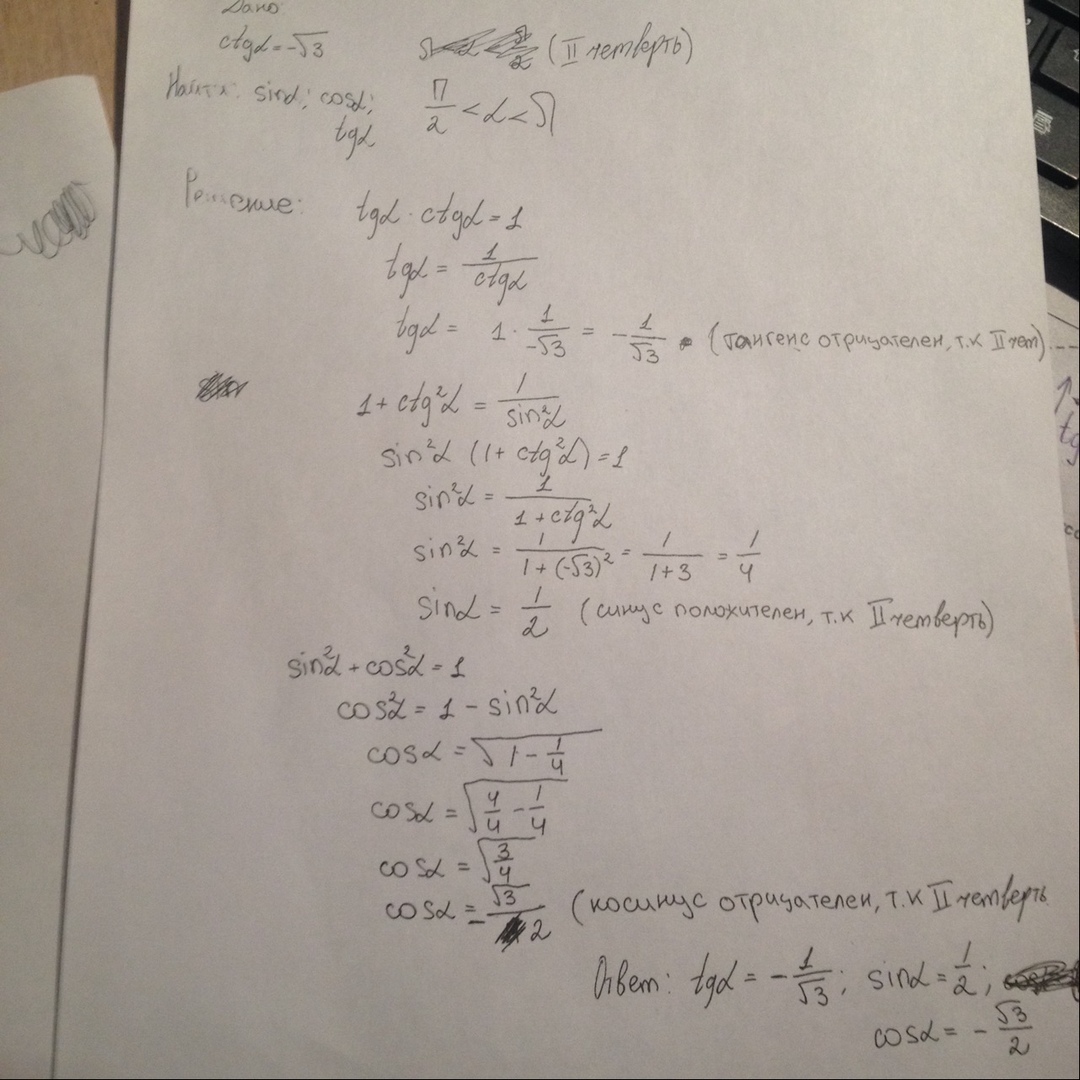 Дано:
ctgα = -√3
(II четверть)
Найти: sinα; cosα;
tgα
π/2 < α < π
Решение:
tgα · ctgα = 1
tgα = 1/ctgα
tgα = 1 · 1/-√3 = -1/√3 (тангенс отрицателен, т.к II чет).
1 + ctg²α = 1/sin²α
sin²α (1 + ctg²α) = 1
sin²α = 1/1 + ctg²α
sin²α = 1/1 + (-√3)² = 1/1+3 = 1/4
sinα = 1/2 (синус положителен, т.к II четверть)
sin²α + cos²α = 1
cos²α = 1 - sin²α
cosα = √1 - 1/4
cosα = √4/4 - 1/4
cosα = √3/4
cosα = -√3/2 (косинус отрицателен, т.к II четверть
Ответ: tgα = -1/√3; sinα = 1/2;
cosα = -√3/2